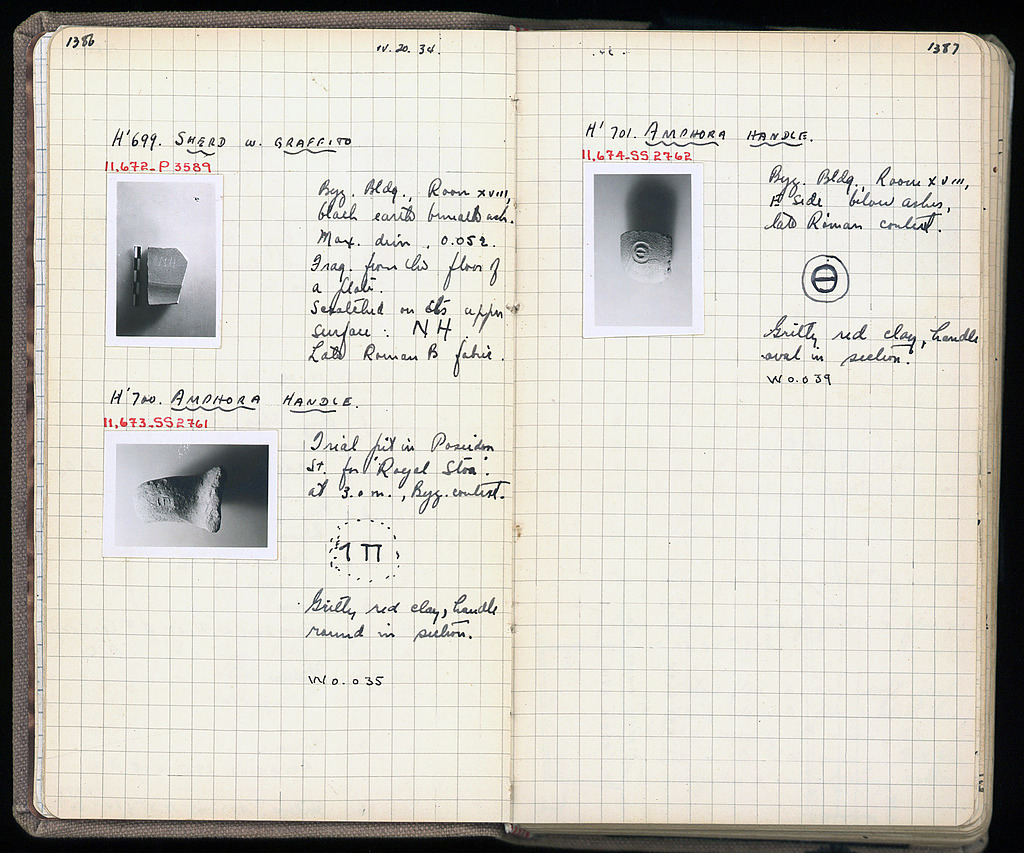 1386
IV. 20. 34.
H'699. SHERD W. GRAFFITO
11,672-P 3589
Byz. Bldg., Room XVIII,
black earth beneath ash.
Max. dim., 0.052.
Frag. from the floor of
a plate.
Scratched on its upper
surface: NH
Late Roman B fabric.
H'700. AMPHORA HANDLE.
11,673-SS2761
Trial pit in Poseidon
St. for 'Royal Stoa'.
at 3.0 m., Byz. context.
Gritty red clay, handle
round in section.
W 0.035
1387
H'701. AMPHORA HANDLE.
11,674-SS2762
Byz. Bldg., Room XVIII,
E side below ashes,
late Roman context.
Θ
Gritty red clay, handle
oval in section.
W 0.039